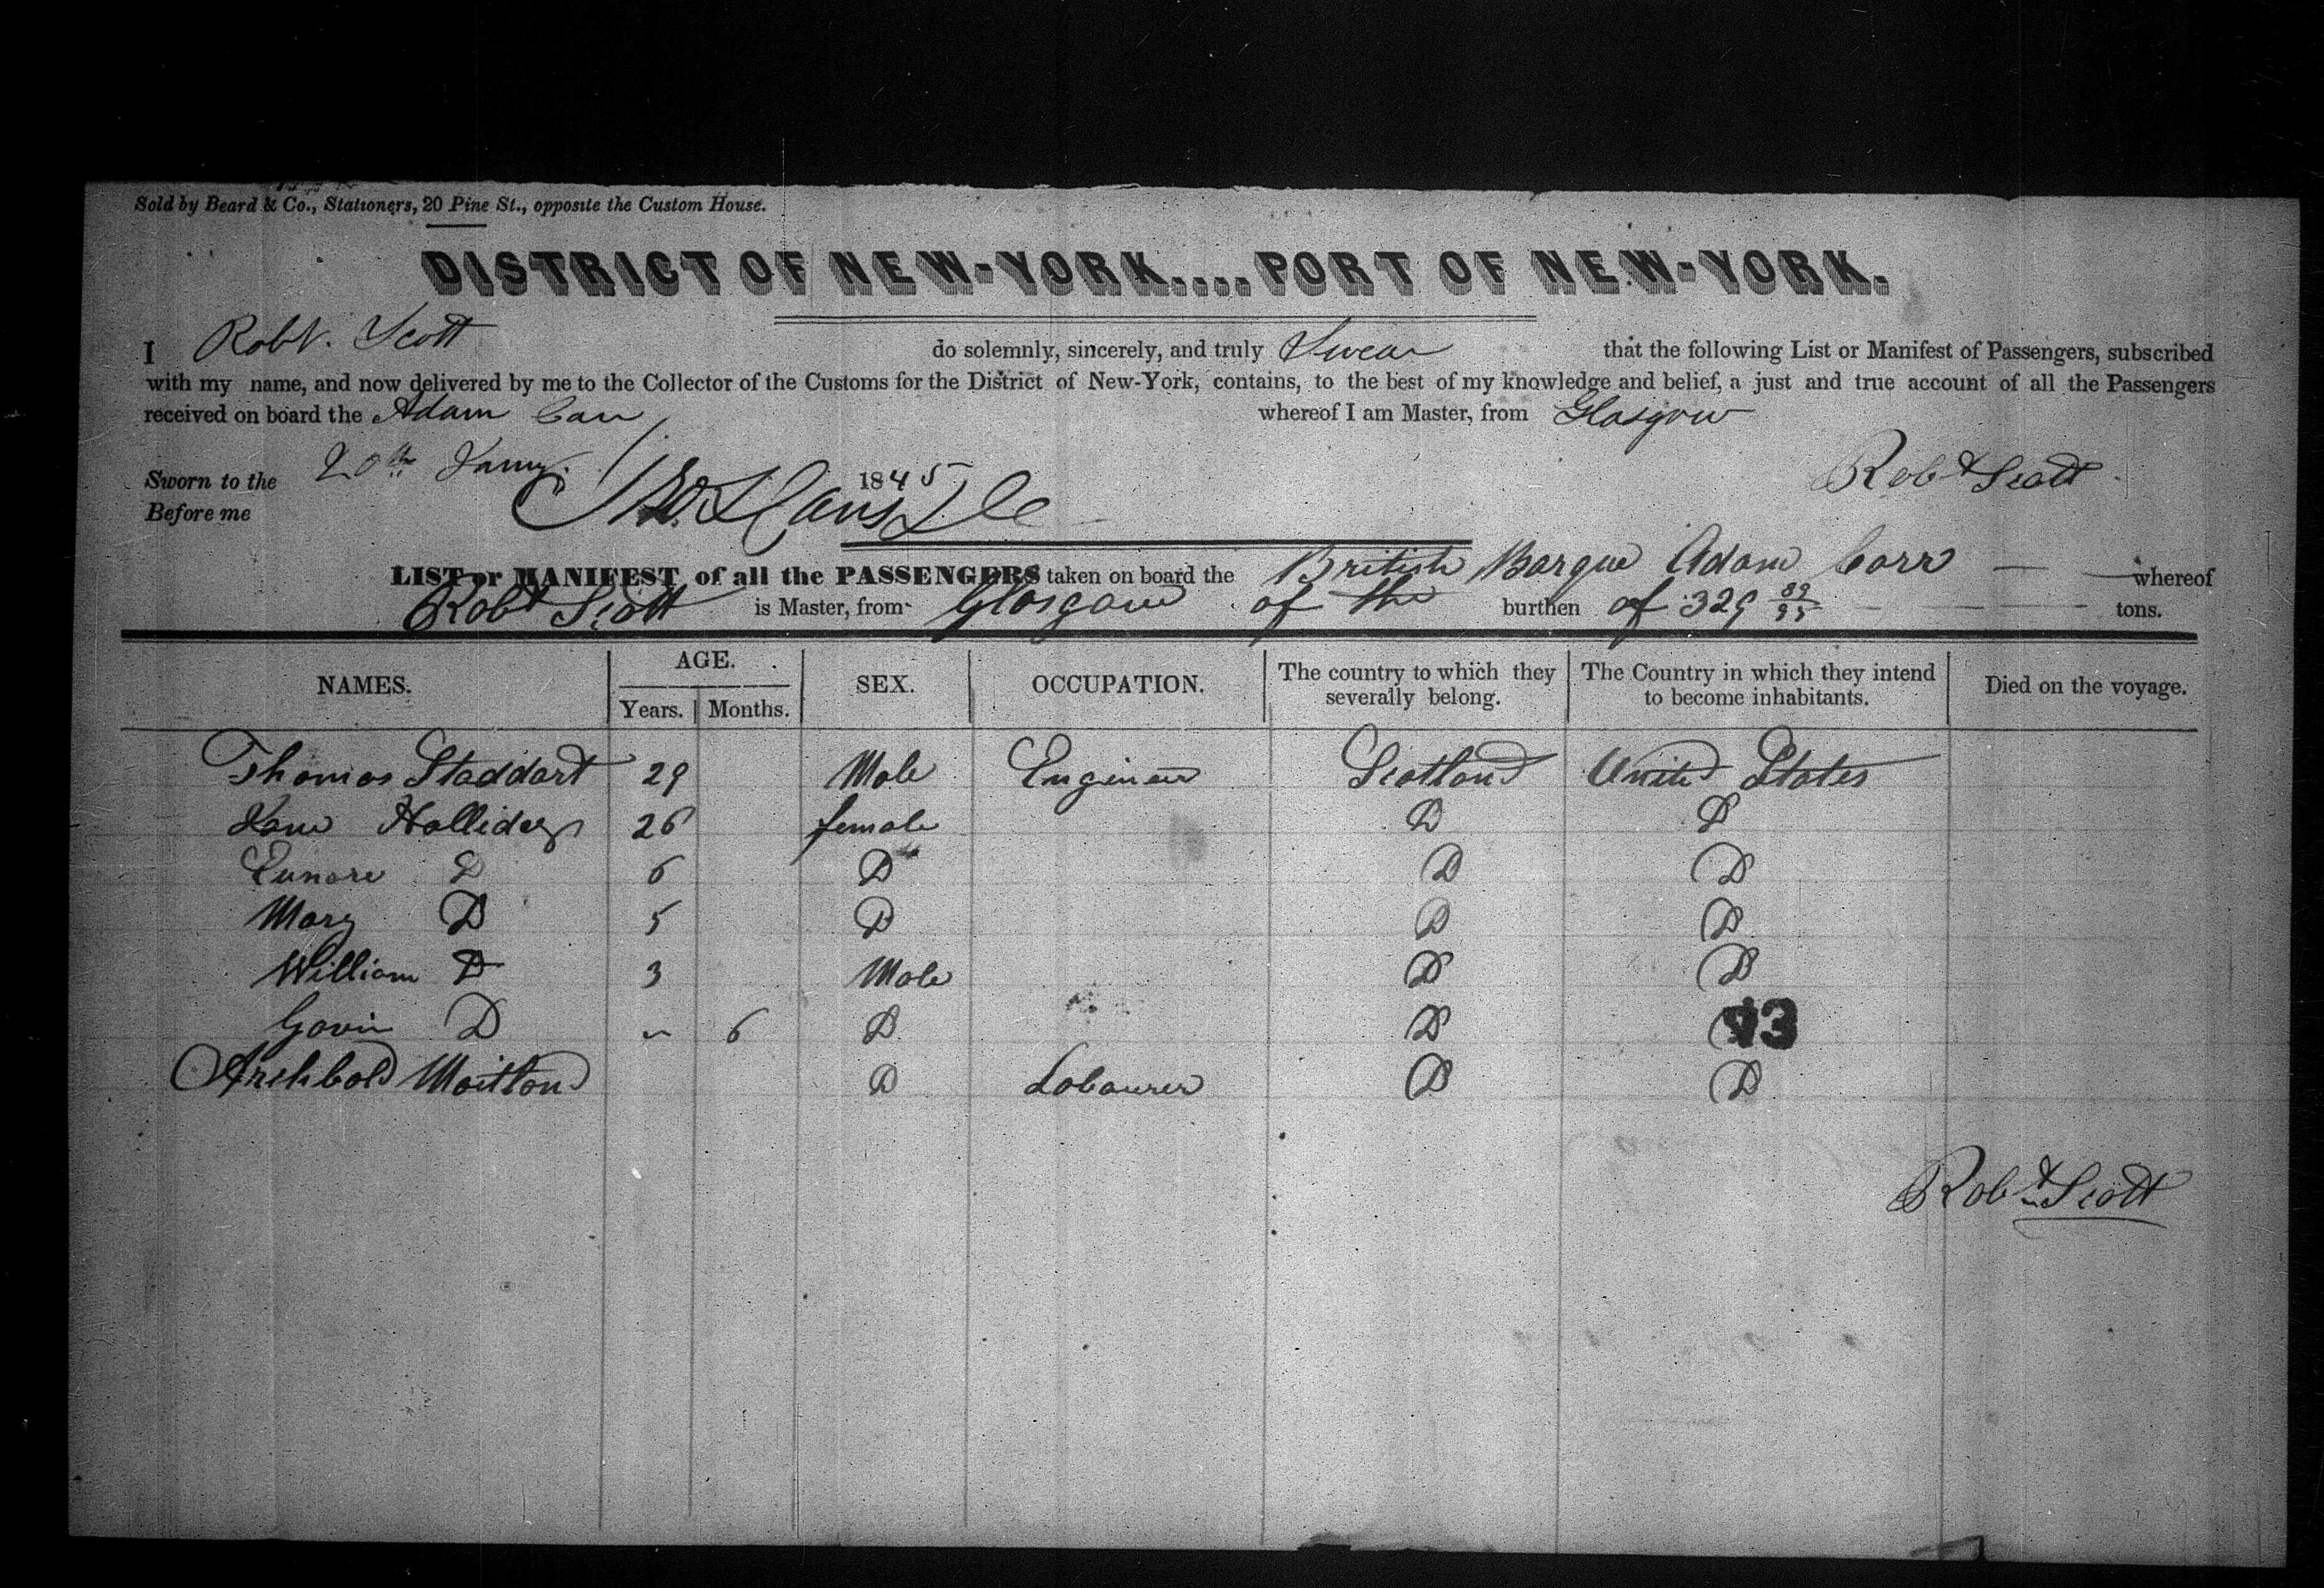 Sold by Beard & Co., Stationers, 20 Pine St., opposite the Custom House.
DISTRICT OF NEW-YORK....PORT OF NEW-YORK.
I Robt. Scott do solemnly, sincerely, and truly Swear that the following List or Manifest of Passengers, subscribed
with my name, and now delivered by me to the Collector of the Customs for the District of New-York, contains, to the best of my knowledge and belief, a just and true account of all the Passengers
received on board the Adam Carr whereof I am Master, from Glasgow
Sworn to the 20th Jany. 1845 Robt Scott
Before me
LIST or MANIFEST, of all the PASSENGERS taken on board the British Barque Adam Carr whereof
Robt Scott is Master, from Glasgow of the burthen of 329 tons.
NAMES. AGE. SEX. OCCUPATION. The country to which they severally belong. The Country in which they intend to become inhabitants. Died on the voyage.
Years. Months.
Thomas Staddart 29 Male Engineer Scotland United States
Jane Holliday 26 female D D
D 6 D D D
Mary D 5 D D D
William D 3 Male D D
Gavin D 6 D D 13
Archbold Maitland D Labourer D D
Robt Scott